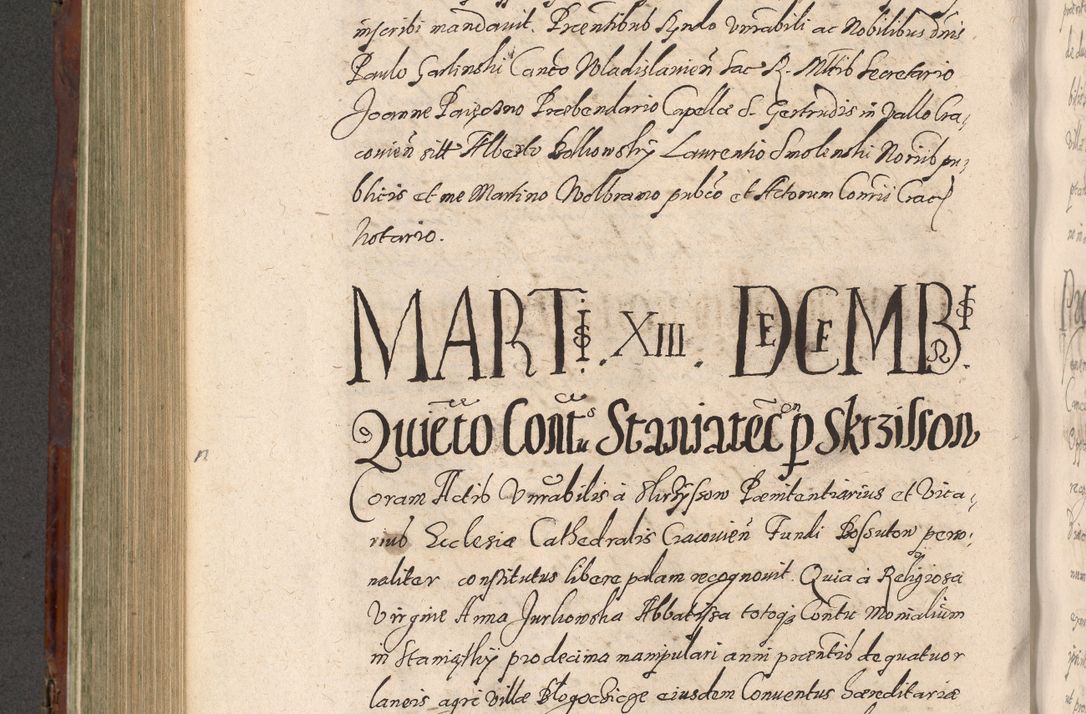 inscribi mandavit. Pręntibus Rndo Vnrabili ac Nobilibus dnis
Paulo Garlinski Canco Wladislavien Sac R. Mttis Secretario
Joanne Præbendario Capellæ S. Gertrudis in Vallo Cra,
covien sitt Alberto Laurentio Smolenski Noriis pu,
blicis et me Martino Wolbramo pubco et Actorum Consrii Crac
notario.
MARTIS. XIII. DECEMBRIS.
Quieto Contus Staniatec p Skrzisson
Coram Actis Vnrabilis à Skrzysson Pænitentiarius et Vica,
rius Ecclesiæ Cathedralis Cracovien Fundi Bossutow perso,
naliter constitutus libere palam recognovit. Quia à Religiosa
Virgine Anna Jurkowska Abbatissa totoq Contu Monialium
in Staniątky pro decima manipulari anni præntis de quatuor
laneis agri Villæ eiusdem Conventus hæreditariæ